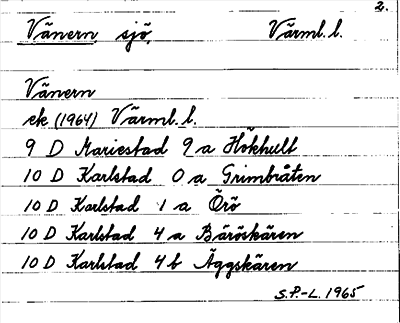 2.
Vänern sjö, Värml. l.
Vänern
ek (1964) Värml. l.
9 D Mariestad 9 a Hökhult
10 D Karlstad 0 a Grimbråten
10 D Karlstad 1 a Örö
10 D Karlstad 4 a Bäröskären
10 D Karlstad 4 b Äggskären
S.P.-L. 1965